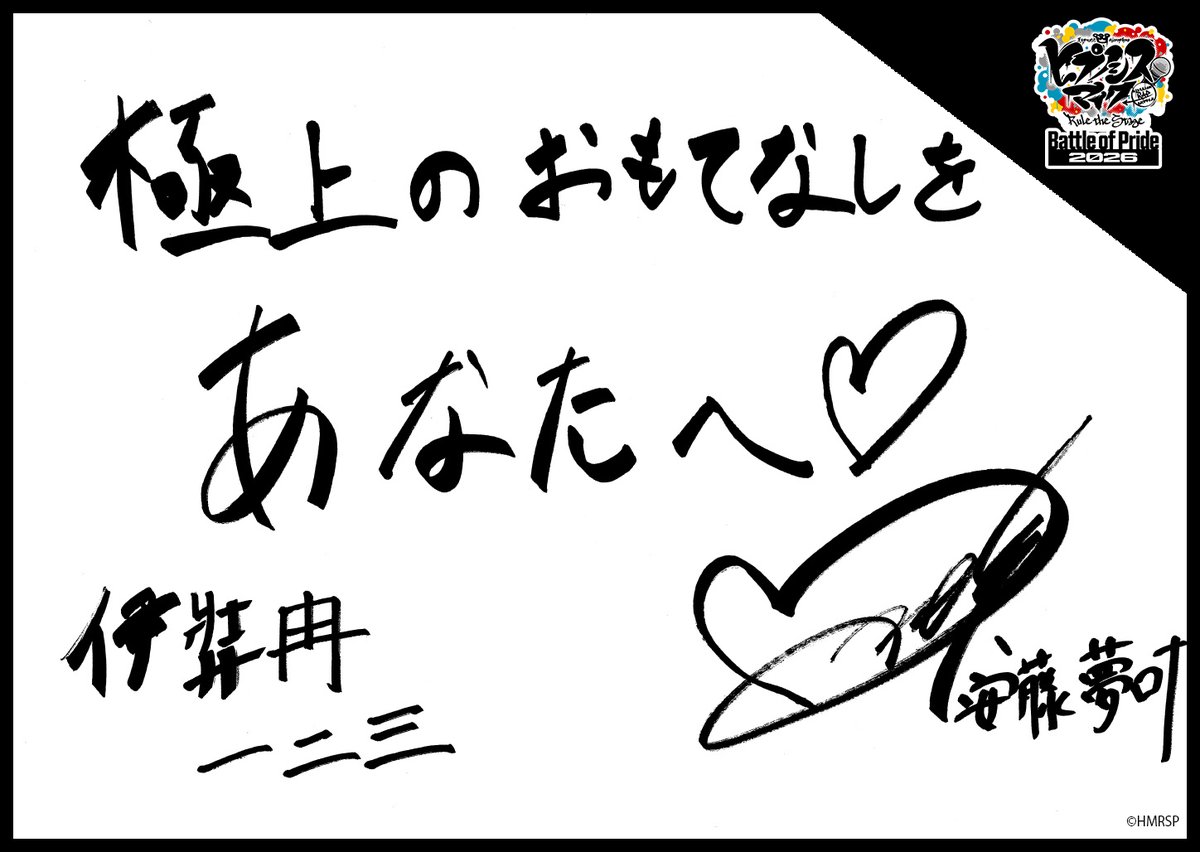 極上のおもてなしを
あなたへ♡
伊弉冉
一二三
安藤夢叶
ヒプノシス
マイク
Rule the Stage
Battle of Pride
2026
©HMRSP